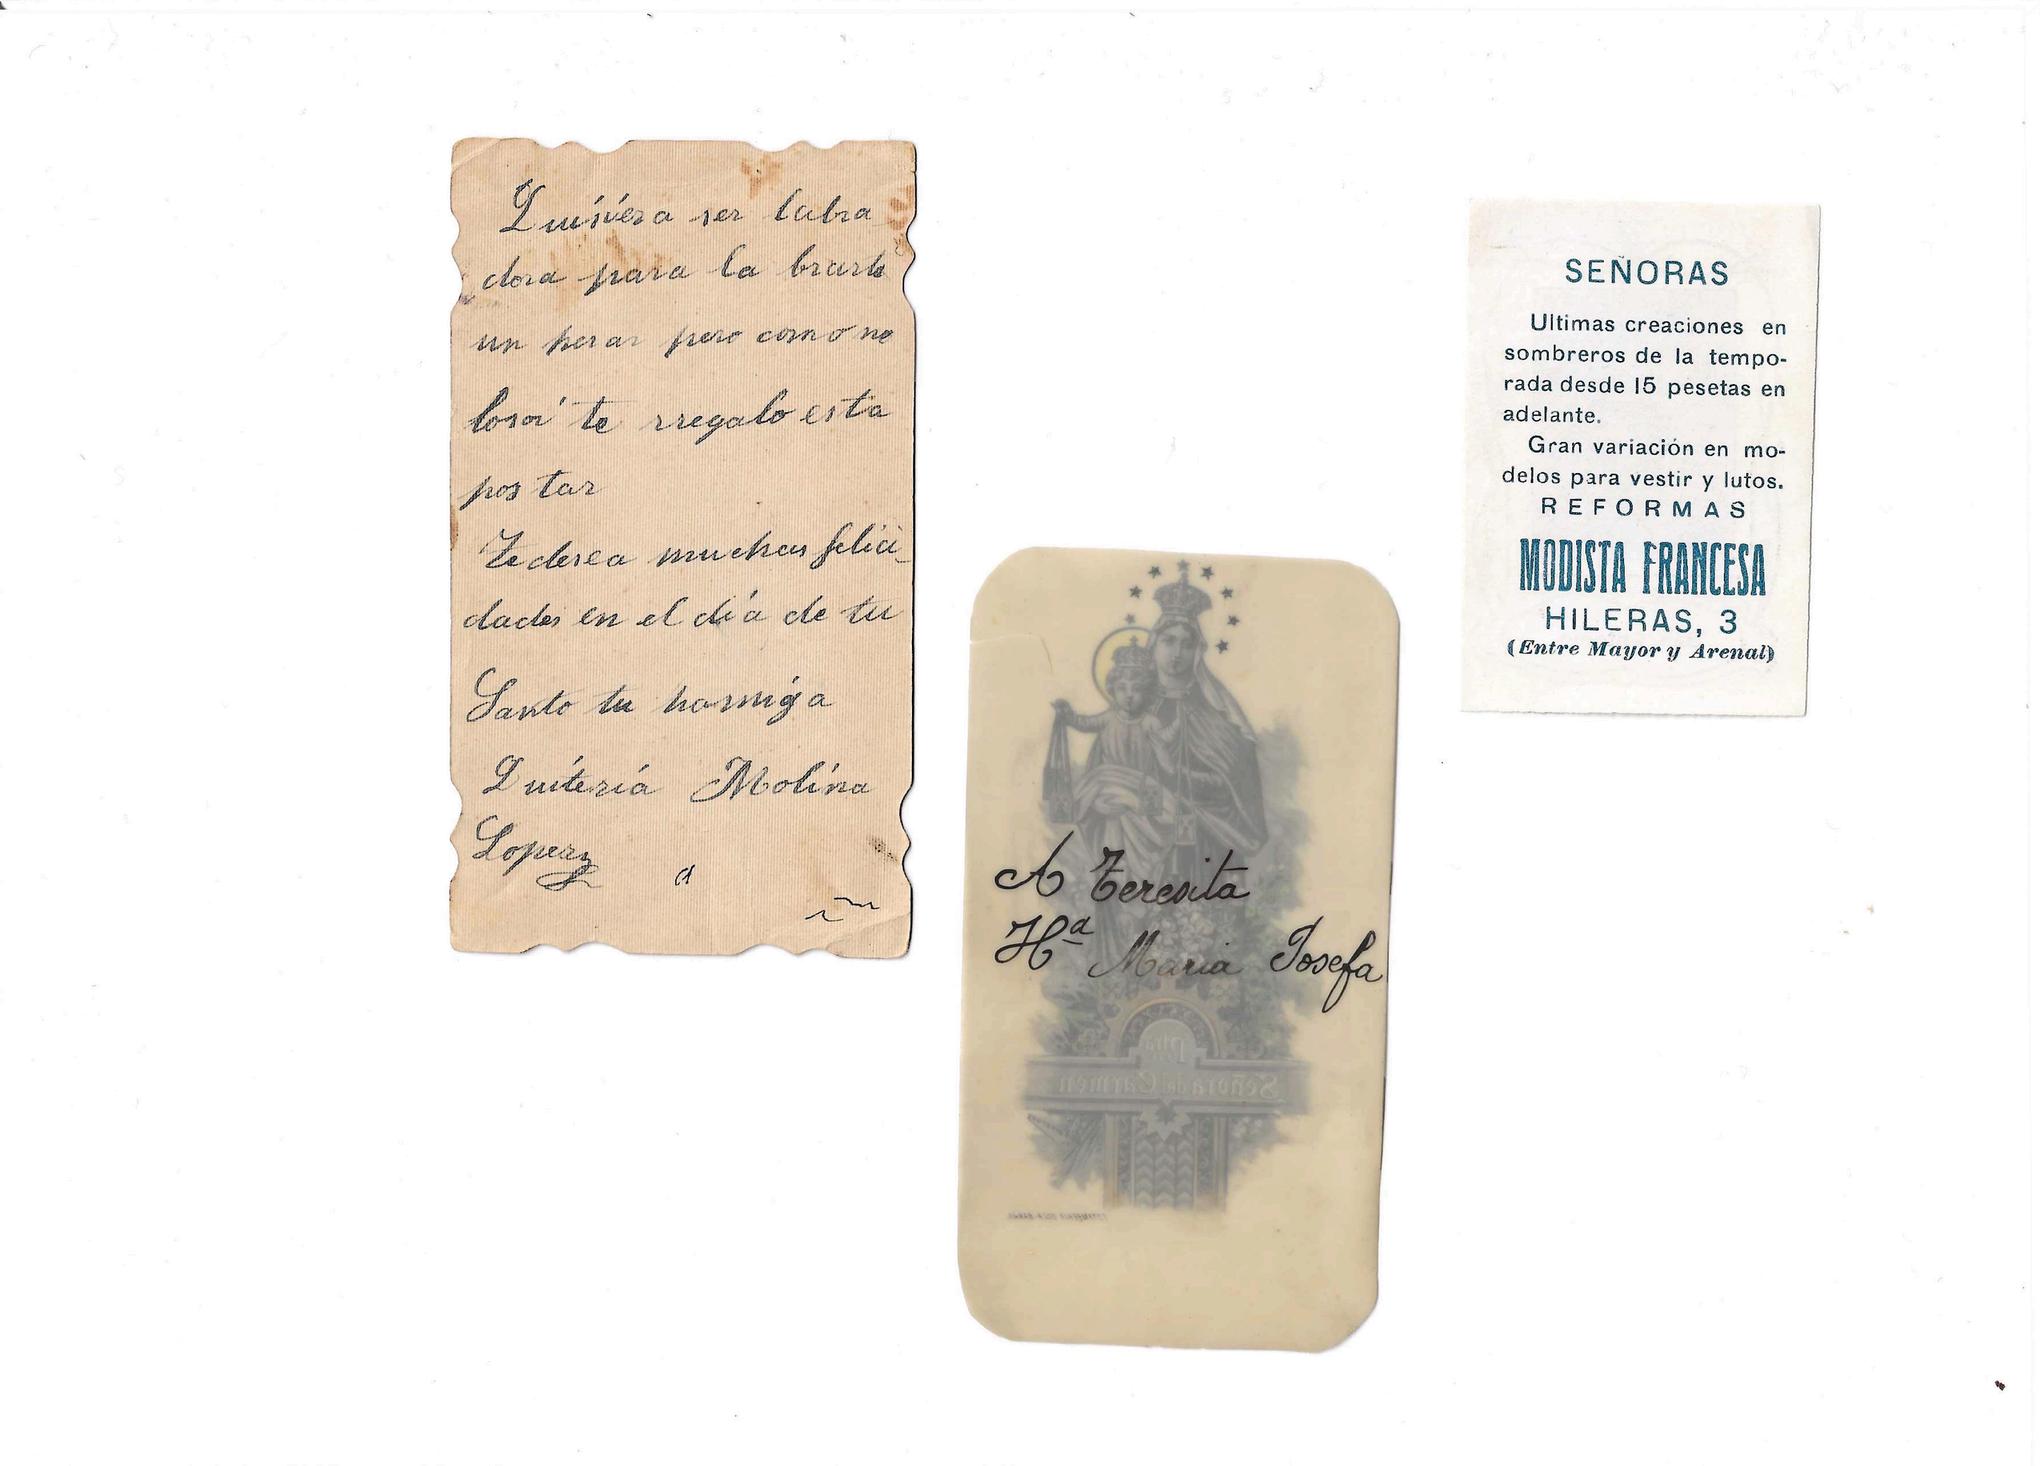 Quisiera ser labra
dora para la brarte
un perar pero como no
losoi te rregalo esta
postar
Te desea muchas felici_
dades en el día de tu
Santo tu hamiga
Quiteria Molina
Loperz
A Teresita
Hª Maria Josefa
Ntra
Señora del Carmen
SEÑORAS
Ultimas creaciones en
sombreros de la tempo-
rada desde 15 pesetas en
adelante.
Gran variación en mo-
delos para vestir y lutos.
REFORMAS
MODISTA FRANCESA
HILERAS, 3
(Entre Mayor y Arenal)